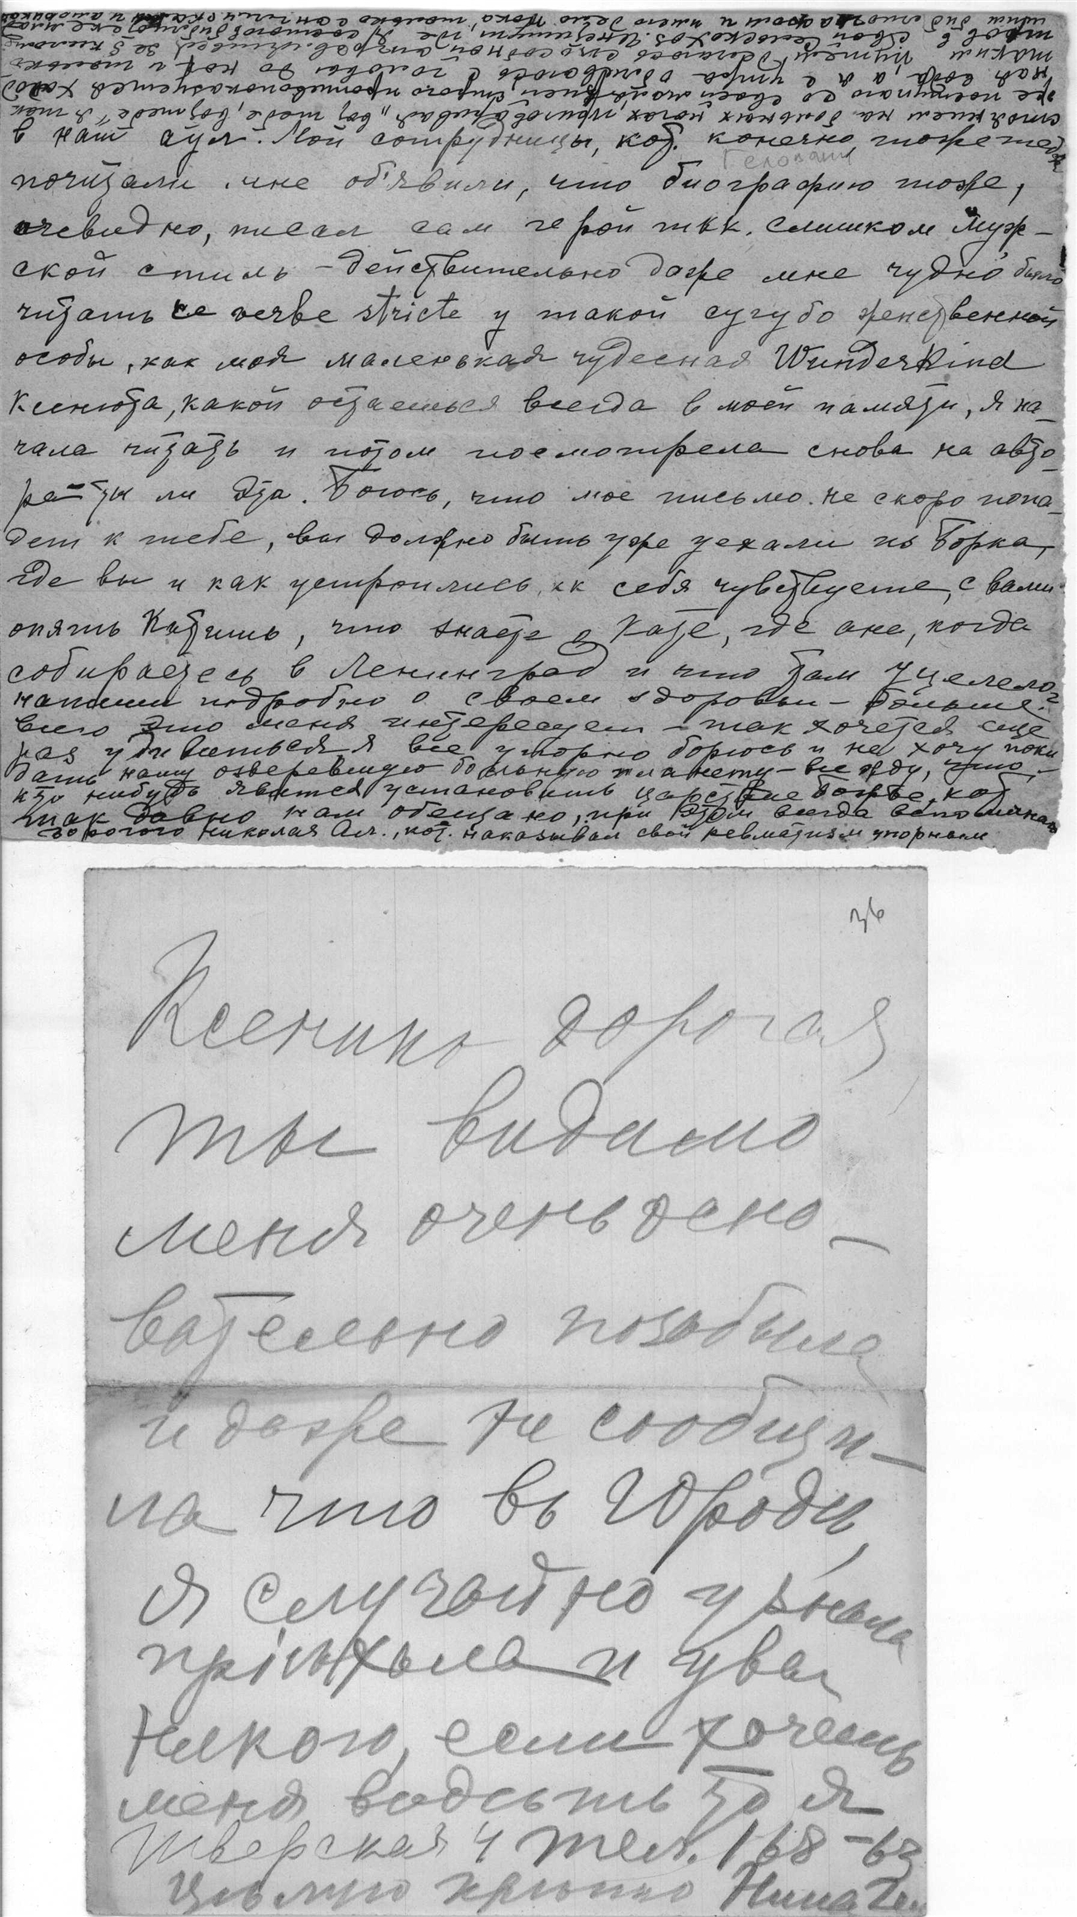 в наш аул. Мои сотрудницы, кот. конечно, тоже тебя
почитали мне объявили, что биографию тоже,
очевидно, писал сам герой т.к. слишком муж-
ской стиль – действительно даже мне чудно было
читать се verbe stricte у такой сугубо женственной
особы, как моя маленькая чудесная Wunderkind
Ксенюта, какой остаешься всегда в моей памяти, я на-
чала читать и потом посмотрела снова на авто-
ра – ты ли эта. Боюсь, что мое письмо не скоро попа-
дет к тебе, вы должно быть уже уехали из Борка,
где вы и как устроились, как себя чувствуете, с вами
опять Катишь, что знаете о Кате, где она, когда
собираетесь в Ленинград и что там уцелело?
напиши подробно о своем здоровьи – больше
всего это меня интересует – так хочется еще
раз увидиться я все упорно борюсь и не хочу поки
дать нашу озверевшую больную планету – все жду, что
кто нибудь явится установить царствие божье, кот.
так давно нам обещано, при этом всегда вспоминаю
дорогого Николая Ал., кот. наказывал свой ревматизм упорным
стоянием на больных ногах приговаривая „вот тебе, вот тебе" я так
же поступаю со своей
36
Ксенино дорогая
ты видимо
меня очень осно-
вательно позабыла
и даже не сообщи-
ла что въ городѣ,
я случайно узнала
пріѣхала и увы
никого, если хочешь
меня видѣть то я
Тверская 4 тел. 168-63
Цѣлую крѣпко Нина